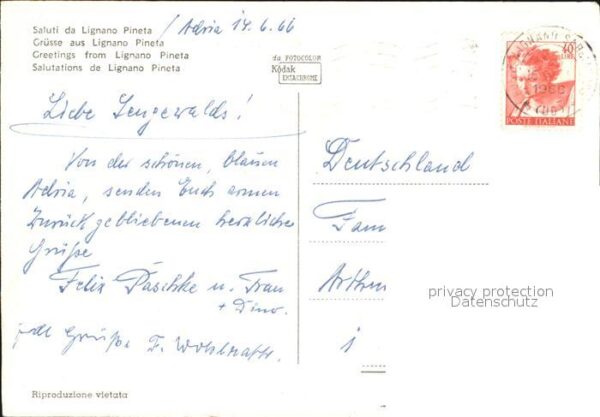 Saluti da Lignano Pineta / Adria 14.6.66
Grüsse aus Lignano Pineta
Greetings from Lignano Pineta
Salutations de Lignano Pineta
da FOTOCOLOR
Kodak
EKTACHROME
40
LIRE
1966
POSTE ITALIANE
Liebe Lengewalds!
Von der schönen, blauen
Adria, senden Euch armen
Zurückgebliebenen herzliche
Grüße
Felix Paschke u. Frau
+ Dino.
Grüße F.
Deutschland
Fam
Arthur
privacy protection
Datenschutz
i
Riproduzione vietata